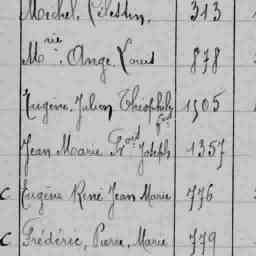 Michel, Célestin, 313
Mrie Ange Louis 878
Eugène Julien Théophile 1505
Jean Marie Fçois Joseph 1357
C Eugène René Jean Marie 776
C Frédéric, Pierre, Marie 779